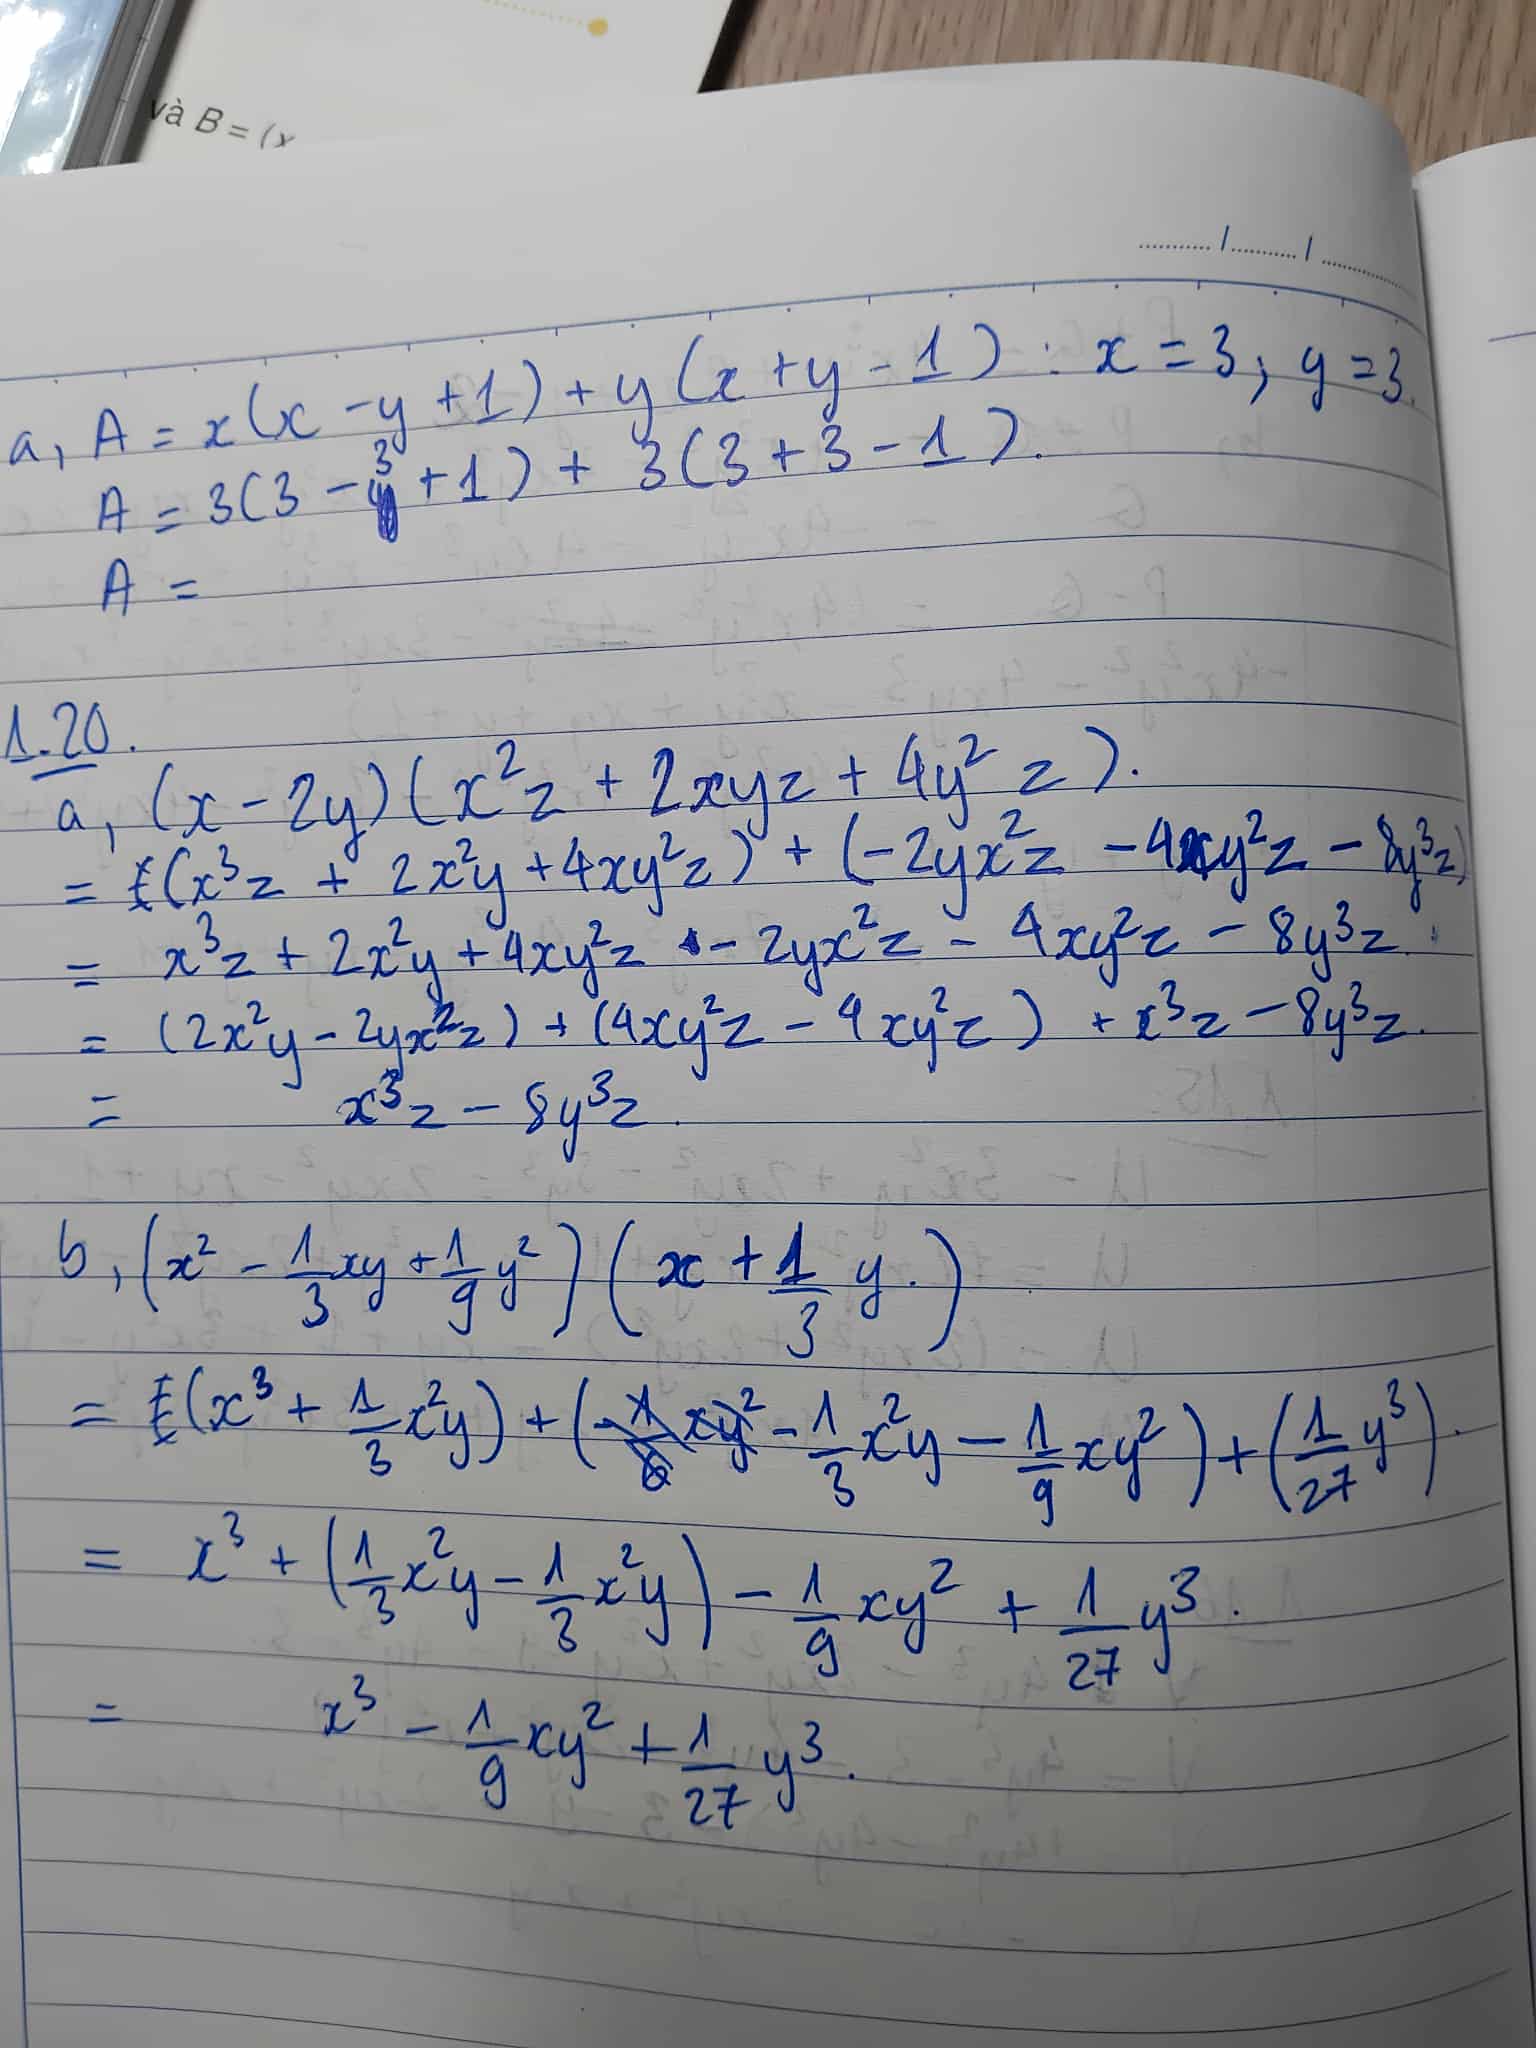 và B = (x
........../........../..........
a, A = x(x - y + 1) + y(x + y - 1) : x = 3; y = 3.
A = 3(3 - 3 + 1) + 3(3 + 3 - 1).
A =
1.20.
a, (x - 2y)(x²z + 2xyz + 4y²z).
= (x³z + 2x²y + 4xy²z) + (-2yx²z - 4xy²z - 8y³z)
= x³z + 2x²y + 4xy²z - 2yx²z - 4xy²z - 8y³z.
= (2x²y - 2yx²z) + (4xy²z - 4xy²z) + x³z - 8y³z.
= x³z - 8y³z.
b, (x² - 1/3 xy + 1/9 y²)(x + 1/3 y.)
= (x³ + 1/3 x²y) + (- 1/3 x²y - 1/9 xy²) + (1/27 y³).
= x³ + (1/3 x²y - 1/3 x²y) - 1/9 xy² + 1/27 y³.
= x³ - 1/9 xy² + 1/27 y³.